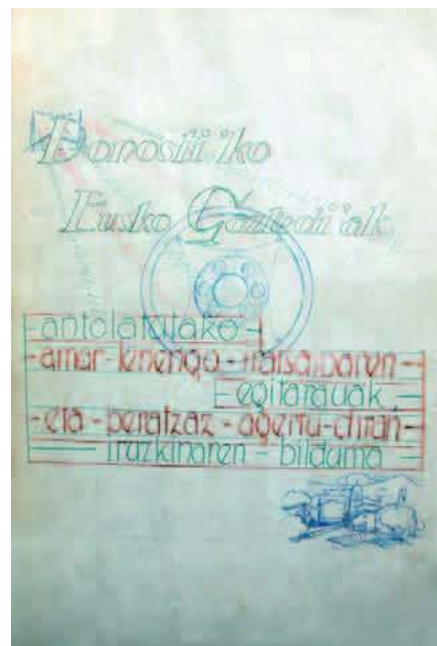 Donosti'ko
Eusko Gaztedi'ak
- antolatutako -
- amar - lenengo - irratsaioaren -
egitarauak -
- eta - beratzaz - agertu - diran -
iruzkinaren - bilduma